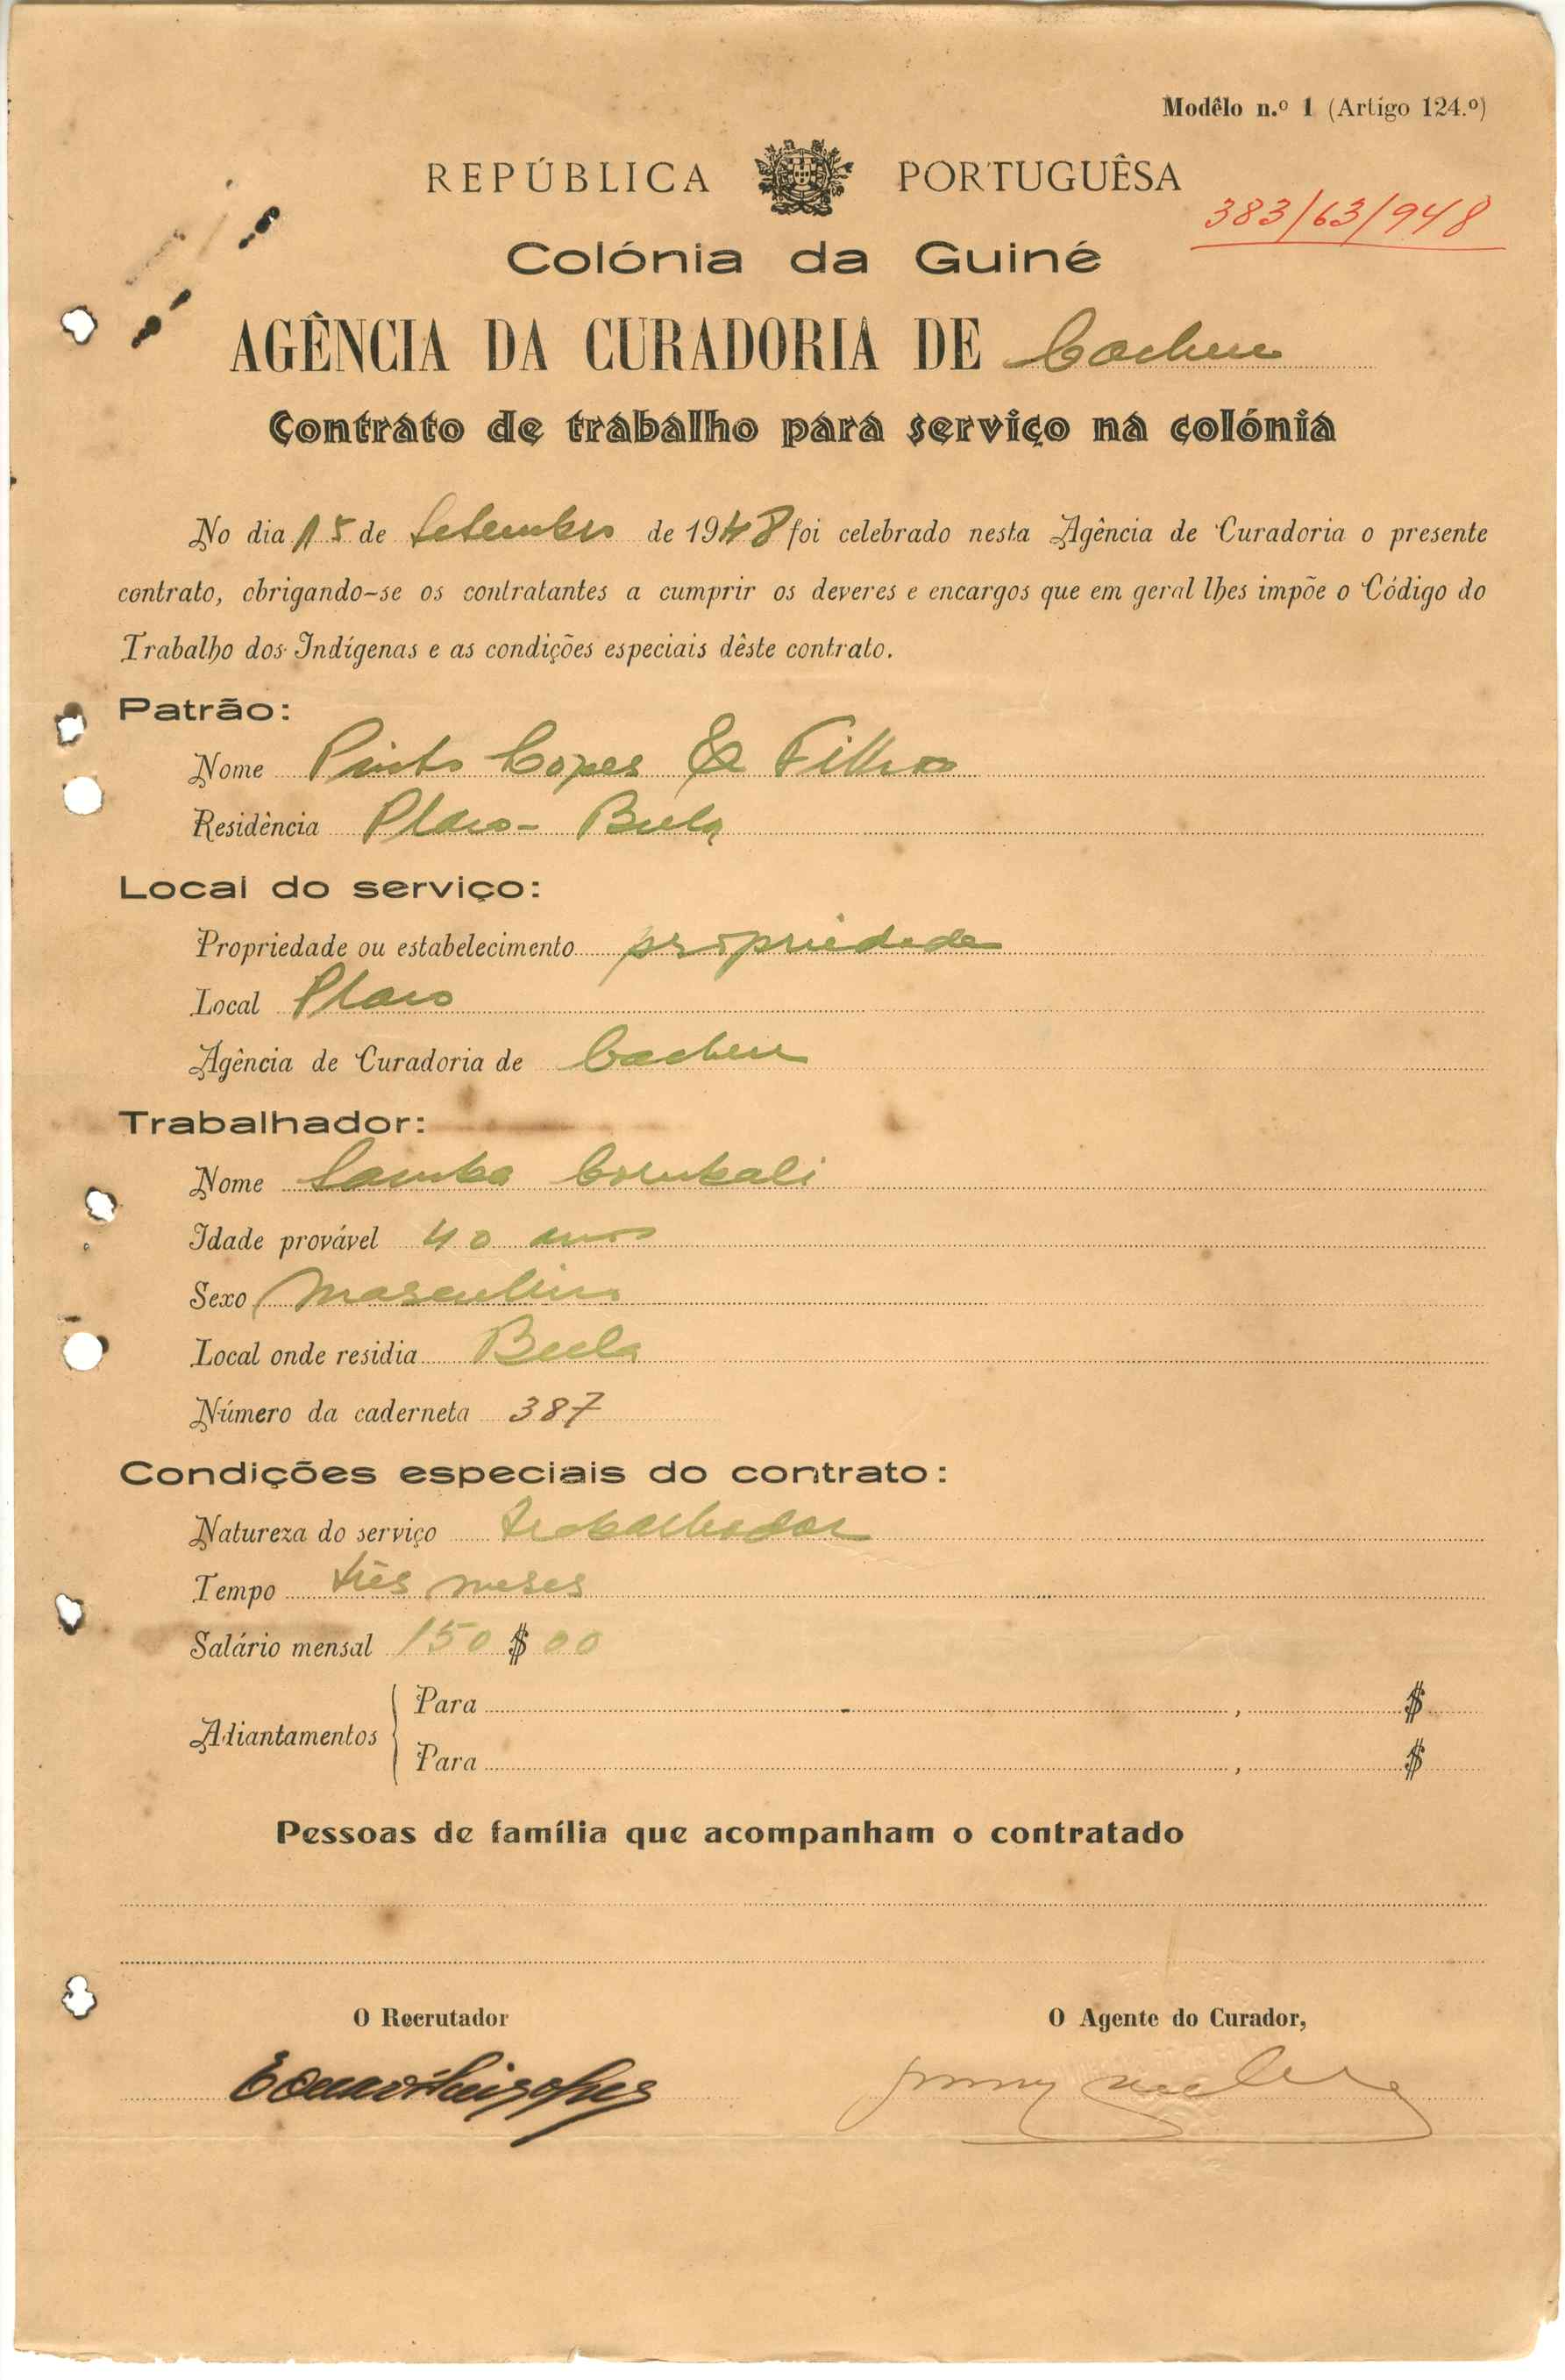 Modêlo n.º 1 (Artigo 124.º)
REPÚBLICA PORTUGUÊSA
383/63/948
Colónia da Guiné
AGÊNCIA DA CURADORIA DE Cacheu
Contrato de trabalho para serviço na colónia
No dia 15 de Setembro de 1948 foi celebrado nesta Agência de Curadoria o presente
contrato, obrigando-se os contratantes a cumprir os deveres e encargos que em geral lhes impõe o Código do
Trabalho dos Indígenas e as condições especiais dêste contrato.
Patrão:
Nome Pinto Lopes & Filhos
Residência Placo - Bula
Local do serviço:
Propriedade ou estabelecimento propriedade
Local Placo
Agência de Curadoria de Cacheu
Trabalhador:
Nome Samba Corubali
Idade provável 40 anos
Sexo masculino
Local onde residia Bula
Número da caderneta 387
Condições especiais do contrato:
Natureza do serviço trabalhador
Tempo três meses
Salário mensal 150$00
Adiantamentos
Para , $
Para , $
Pessoas de família que acompanham o contratado
O Recrutador O Agente do Curador,